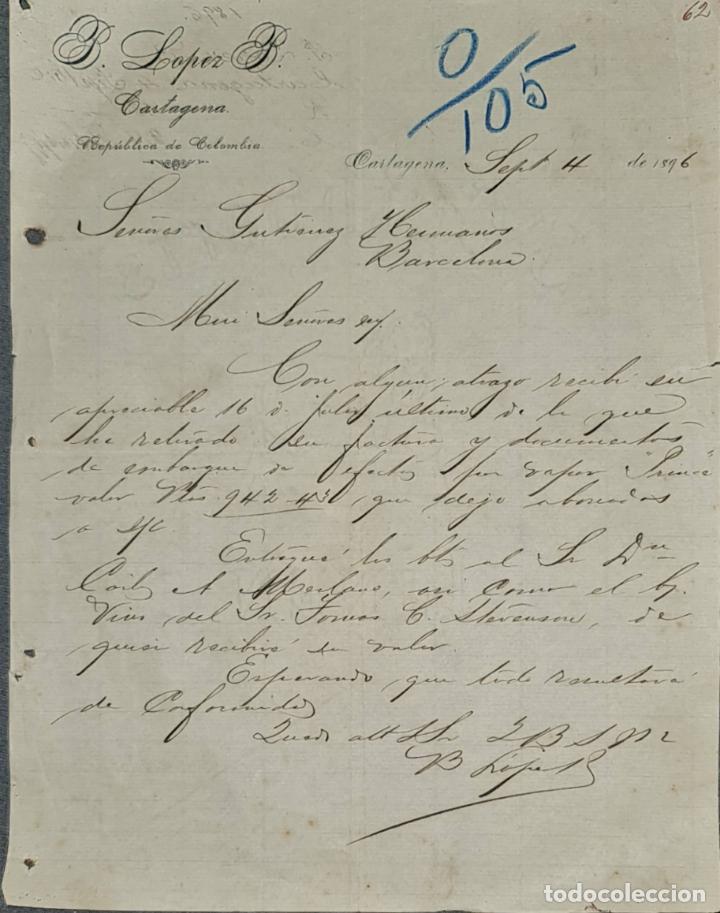 62
B. Lopez B.
Cartagena.
República de Colombia
0/105
Cartagena, Sept 4 de 1896
Señores Gutierrez Hermanos
Barcelona.
Mui Señores
Con algun atrazo recibí su
apreciable 16 d. julio último de la que
he retirado su factura y documentos
de embarque de efectos por vapor
valor Ptas 942-43 que dejo abonadas
a s/c
Entregué los bts al Sr Dn
A Merlano, asi como el
Vino del Sr. Tomas C. Stevenson, de
quien recibiré su valor.
Esperando que todo resultará
de Conformidad
Quedo att SS Q B S M
B López B
todocoleccion